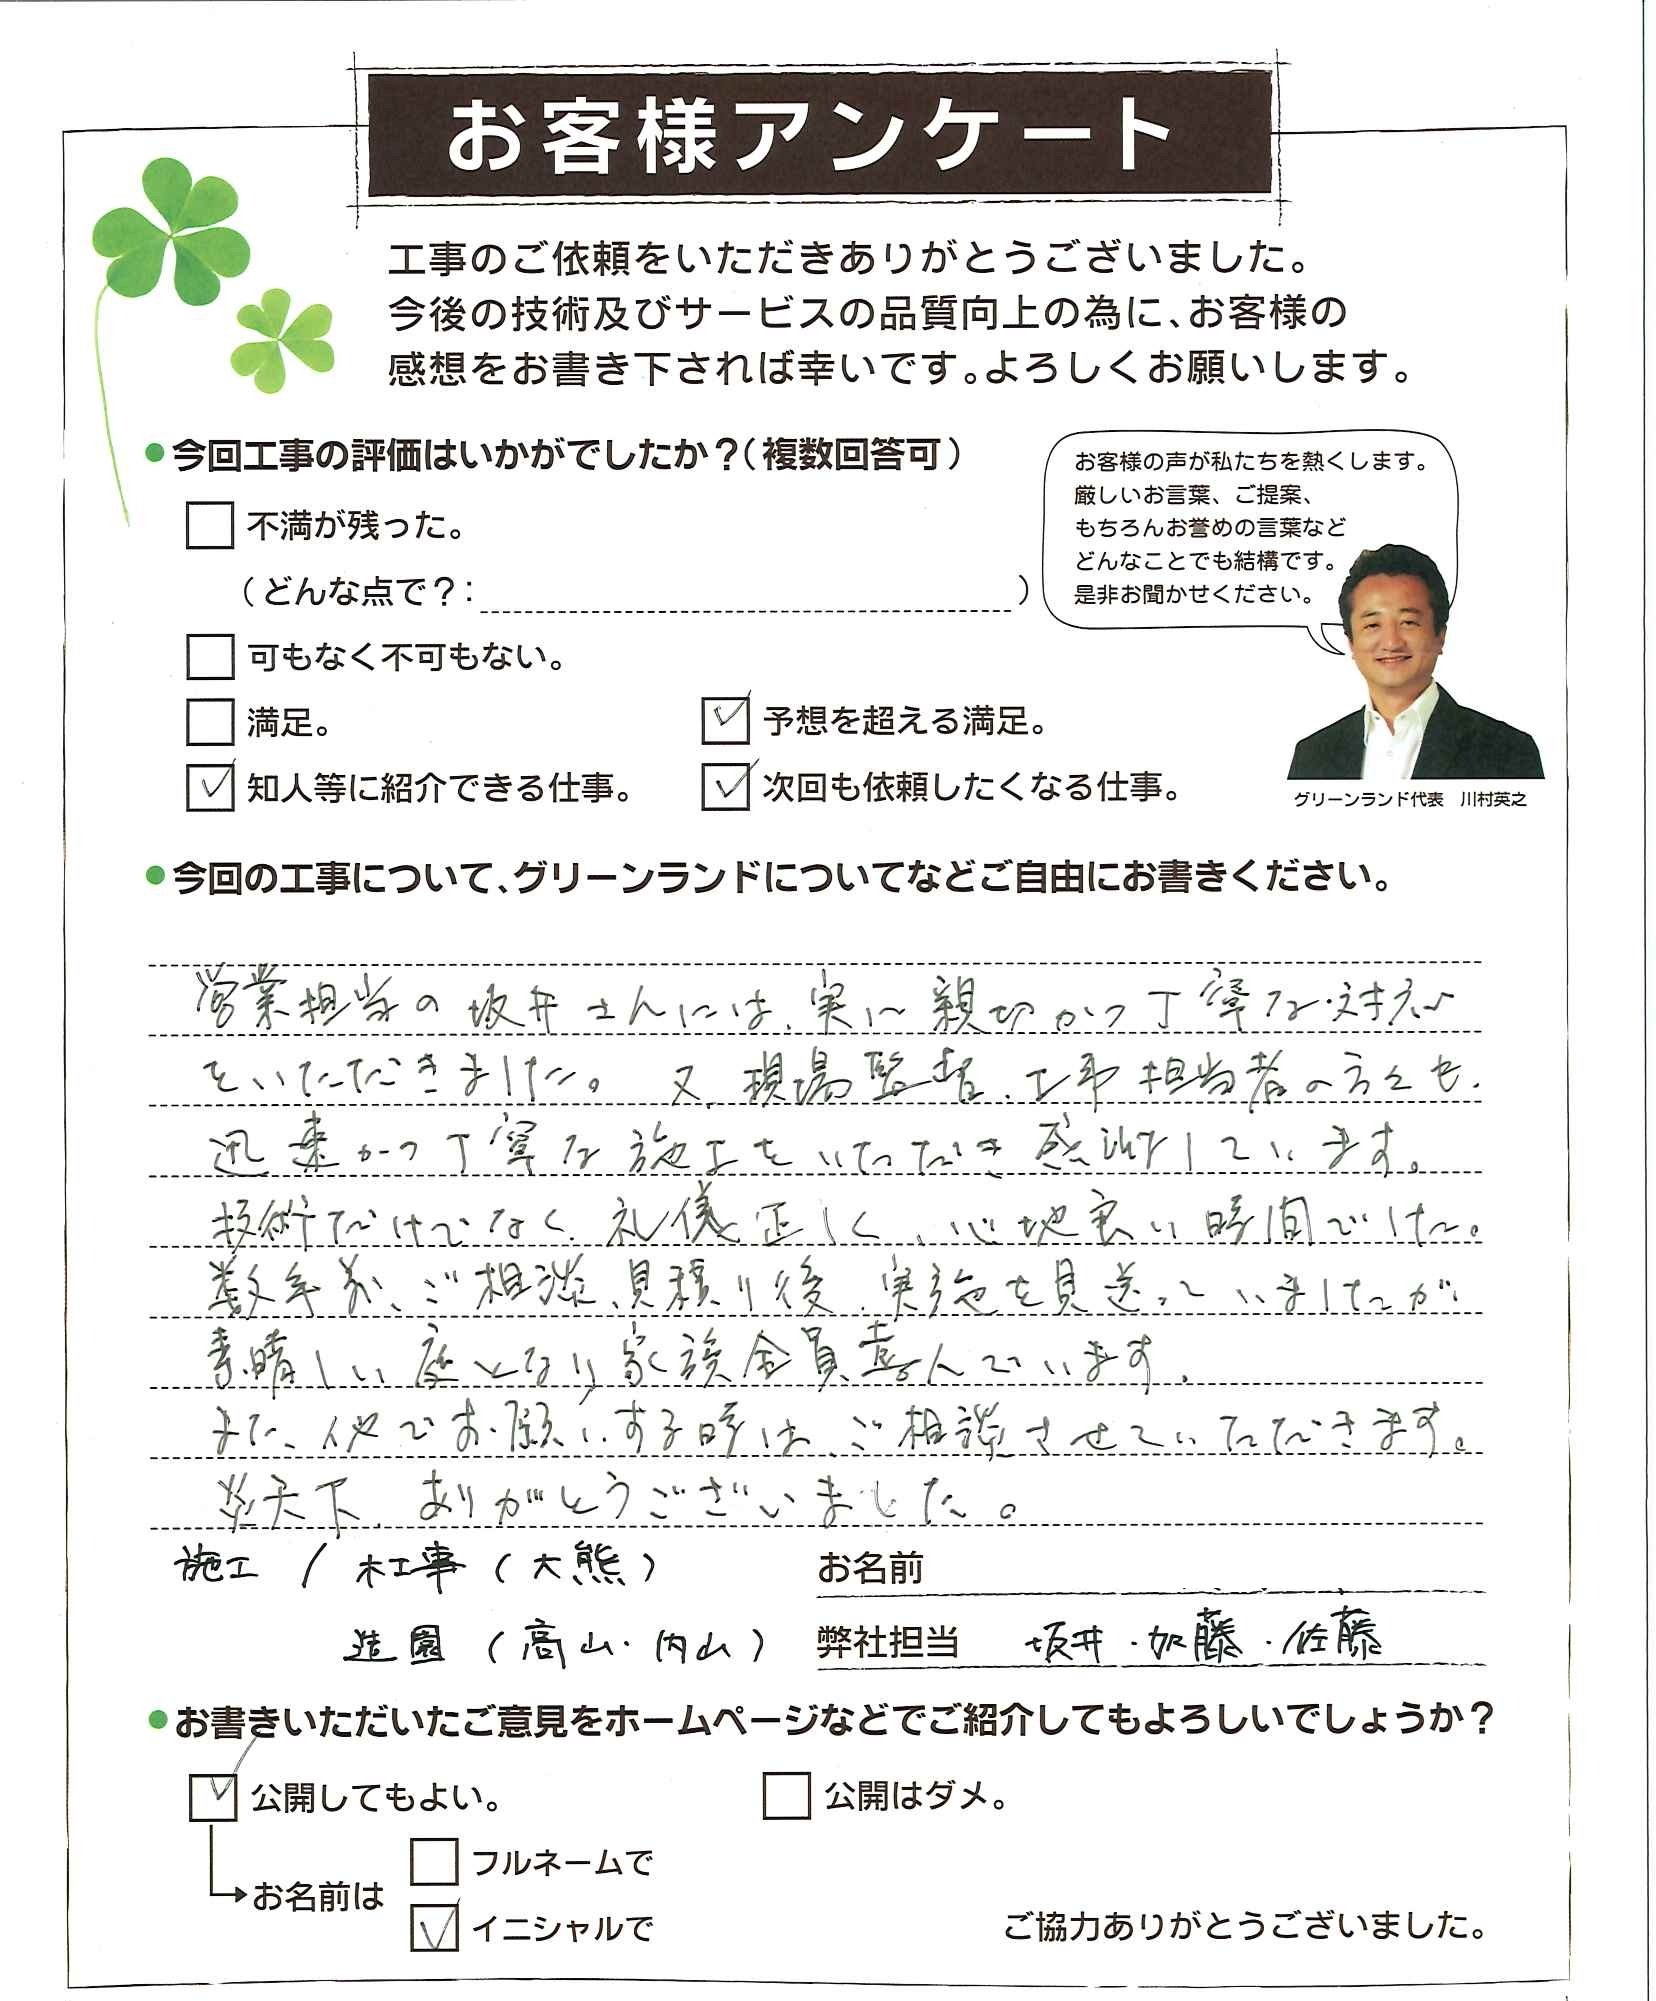 お客様アンケート
工事のご依頼をいただきありがとうございました。
今後の技術及びサービスの品質向上の為に、お客様の
感想をお書き下されば幸いです。よろしくお願いします。
●今回工事の評価はいかがでしたか？（複数回答可）
不満が残った。
（どんな点で？：　）
可もなく不可もない。
満足。
予想を超える満足。
知人等に紹介できる仕事。
次回も依頼したくなる仕事。
お客様の声が私たちを熱くします。
厳しいお言葉、ご提案、
もちろんお誉めの言葉など
どんなことでも結構です。
是非お聞かせください。
グリーンランド代表　川村英之
●今回の工事について、グリーンランドについてなどご自由にお書きください。
営業担当の坂井さんには、実に親切かつ丁寧な対応
をいただきました。又、現場監督、工事担当者の方々も、
迅速かつ丁寧な施工をいただき感謝しています。
技術だけでなく、礼儀正しく、心地良い時間でした。
数年前、ご相談、見積り後、実施を見送っていましたが、
素晴しい庭となり、家族全員喜んでいます。
また、他でお願いする時は、ご相談させていただきます。
炎天下、ありがとうございました。
施工 / 木工事（大熊）
造園（高山・内山）
お名前
弊社担当　坂井・加藤・佐藤
●お書きいただいたご意見をホームページなどでご紹介してもよろしいでしょうか？
公開してもよい。
公開はダメ。
お名前は
フルネームで
イニシャルで
ご協力ありがとうございました。